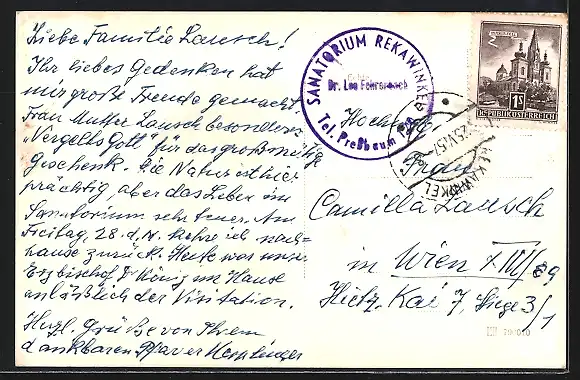 Liebe Familie Lausch!
Ihr liebes Gedenken hat
mir große Freude gemacht
Frau Mutter Lausch besonderes
"Vergelts Gott" für das großmütige
Geschenk. Die Natur ist hier
prächtig, aber das Leben im
Sanatorium sehr teuer. Am
Freitag, 28. d. M. kehre ich nach=
hause zurück. Heute war unser
Erzbischof Dr König im Hause
anläßlich der Visitation.
Herzl. Grüße von Ihrem
dankbaren Pfarrer
SANATORIUM REKAWINKEL
Dr. Leo Fehrenbach
Tel. Preßbaum
2
1S
REPUBLIK ÖSTERREICH
REKAWINKEL
Hochw.
Frau
Camilla Lausch
in Wien XIII/89
Hietz. Kai 7, Stiege 3/1